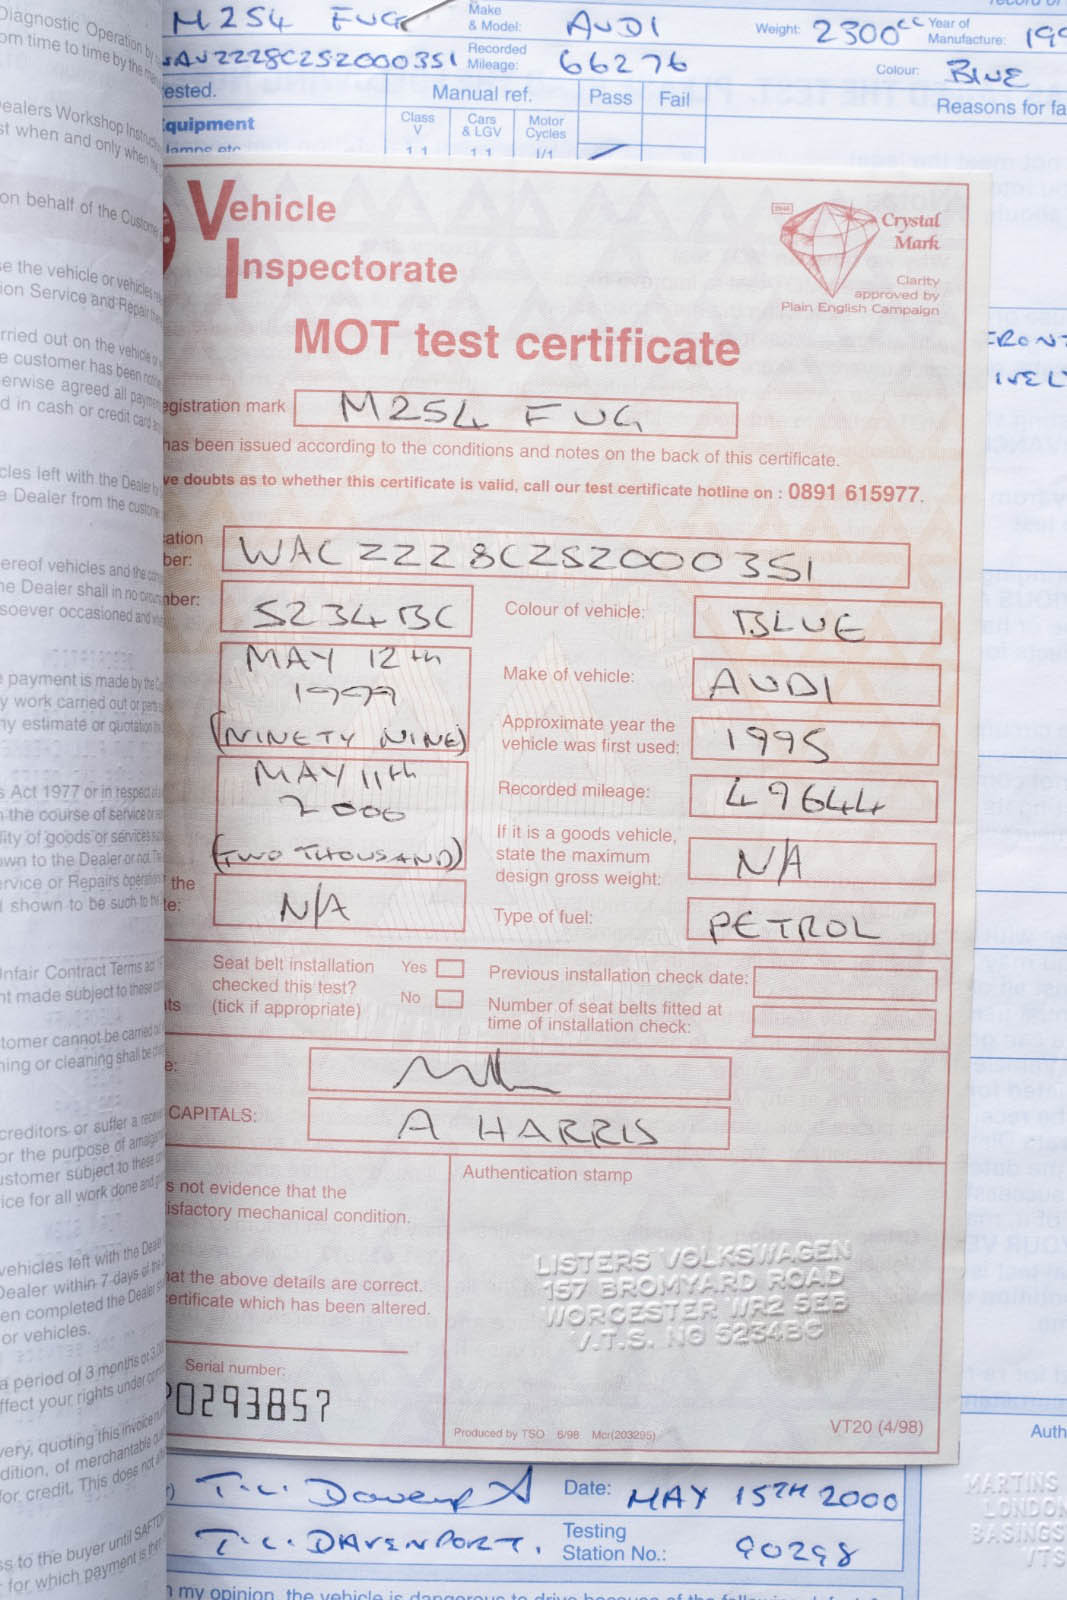 M254 FUG
Make & Model: AUDI
Weight: 2300cc
Year of Manufacture: 199
WAUZZZ8CZSZ000351
Recorded Mileage: 66276
Colour: BLUE
ested.
Manual ref.
Pass
Fail
Reasons for fa
quipment
Class V
Cars & LGV
Motor Cycles
Vehicle
Inspectorate
Crystal
Mark
Clarity
approved by
Plain English Campaign
MOT test certificate
egistration mark M254 FUG
has been issued according to the conditions and notes on the back of this certificate.
ve doubts as to whether this certificate is valid, call our test certificate hotline on : 0891 615977.
cation
ber: WACZZZ8CZSZ000351
nber: 5234BC
Colour of vehicle: BLUE
MAY 12th
1999
(NINETY NINE)
Make of vehicle: AUDI
Approximate year the
vehicle was first used: 1995
MAY 11th
2000
(TWO THOUSAND)
Recorded mileage: 49644
If it is a goods vehicle,
state the maximum
design gross weight: N/A
the
te: N/A
Type of fuel: PETROL
Seat belt installation
checked this test?
(tick if appropriate)
Yes
No
Previous installation check date:
Number of seat belts fitted at
time of installation check:
nts
e:
CAPITALS: A HARRIS
s not evidence that the
isfactory mechanical condition.
at the above details are correct.
ertificate which has been altered.
Authentication stamp
LISTERS VOLKSWAGEN
157 BROMYARD ROAD
WORCESTER WR2 5EB
V.T.S. NO 5234BC
Serial number:
0293857
Produced by TSO 6/98 Mcr(203295)
VT20 (4/98)
Date: MAY 15TH 2000
T.C. DAVENPORT.
Testing
Station No.: 90298
n my opinion, the vehicle is dangerous to drive because of the following
Auth
MARTINS
LONDON
BASINGS
VTS
FRONT
IVELY
Diagnostic Operation by
om time to time by the
ealers Workshop
st when and only when
on behalf of the Customer
se the vehicle or vehicles
ion Service and Repair
rried out on the vehicle
e customer has been
erwise agreed all
d in cash or credit card
cles left with the Dealer
e Dealer from the
ereof vehicles and the
he Dealer shall in no
soever occasioned and
payment is made by the
y work carried out or
ny estimate or quotation
s Act 1977 or in respect
n the course of service
lity of goods or services
own to the Dealer or not.
ervice or Repairs
shown to be such to the
nfair Contract Terms
nt made subject to these
tomer cannot be carried
ning or cleaning shall be
creditors or suffer a
or the purpose of
ustomer subject to these
ice for all work done and
vehicles left with the Dealer
ealer within 7 days of the
en completed the Dealer
or vehicles.
a period of 3 months or 3,000
ffect your rights under
very, quoting this invoice
dition, of merchantable
for credit. This does not
ss to the buyer until
for which payment is